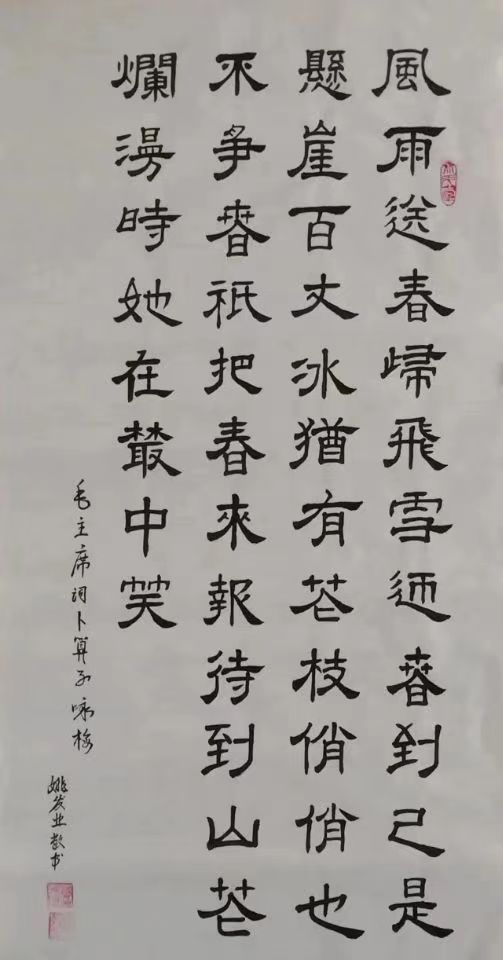 風雨送春歸飛雪迎春到已是
懸崖百丈冰猶有花枝俏俏也
不爭春祇把春來報待到山花
爛漫時她在叢中笑
毛主席词卜算子咏梅
姚发业敬书